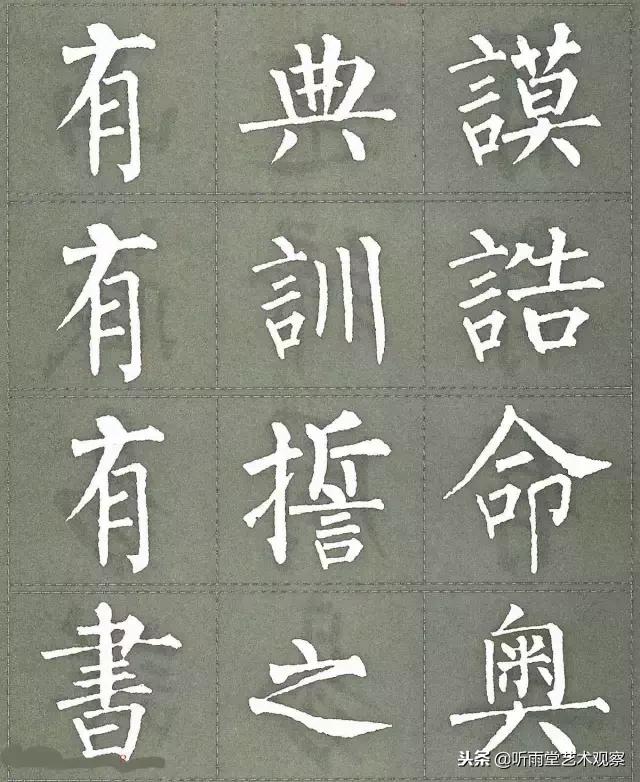 有典謨
有訓誥
有誓命
書之奧
头条 @听雨堂艺术观察